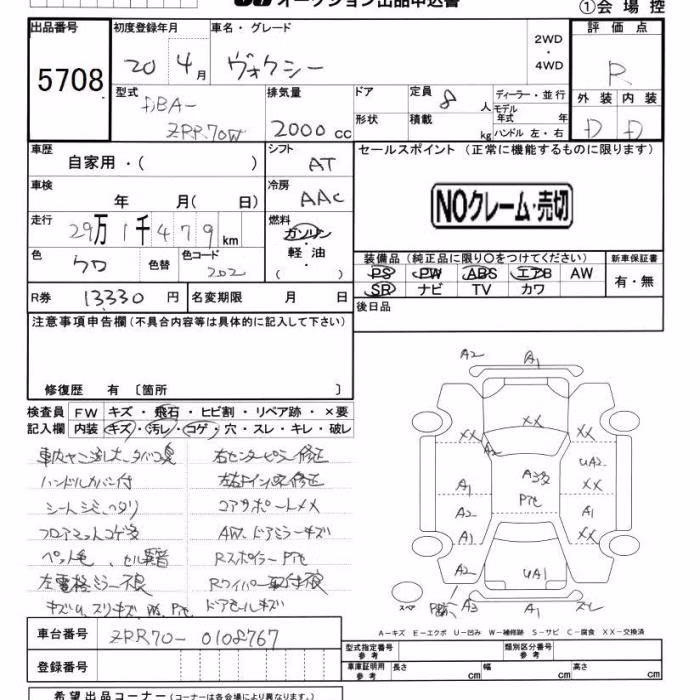 オークション出品申込書
①会場控
出品番号
5708
初度登録年月
20 4月
車名・グレード
ヴォクシー
2WD
・
4WD
評価点
R
外装 内装
D D
型式
DBA-
ZRR70W
排気量
2000cc
ドア
形状
定員 8人
積載 kg
ディーラー・並行
モデル
年式 年
ハンドル 左・右
車歴
自家用・( )
シフト
AT
セールスポイント (正常に機能するものに限ります)
NOクレーム・売切
車検
年 月( 日)
冷房
AAC
走行
29万1千479km
燃料
ガソリン
軽・油
( )
色
クロ
色替
色コード
202
装備品 (純正品に限り○をつけてください)
PS PW ABS エアB AW
SR ナビ TV カワ
新車保証書
有・無
R券 13330円
名変期限 月 日
後日品
注意事項申告欄 (不具合内容等は具体的に記入して下さい)
修復歴 有 〔箇所 〕
検査員 FW キズ・飛石・ヒビ割・リペア跡・×要
記入欄 内装 キズ・汚レ・コゲ・穴・スレ・キレ・破レ
右センターピラー修正
ハンドルカバー付
シートシミ、ヘタリ
コアサポートメメ
フロアマットコゲ多
AW、ドアミラーキズ
左電格ミラー不良
Rワイパー取付不良
ドアモールキズ
A2 A1
XX XX
XX A2
UA2
A1 A3多 XX
Pヤセ
A2 A1
A1 XX
A2 UA1
A3 A1 スレ
スペア
A-キズ E-エクボ U-凹み W-補修跡 S-サビ C-腐食 XX-交換済
車台番号 ZRR70-0108767
登録番号
型式指定番号
参考
類別区分番号
参考
車庫証明用
参考
長さ cm 幅 cm 高さ cm
希望出品コーナー (コーナーは各会場により異なります。)